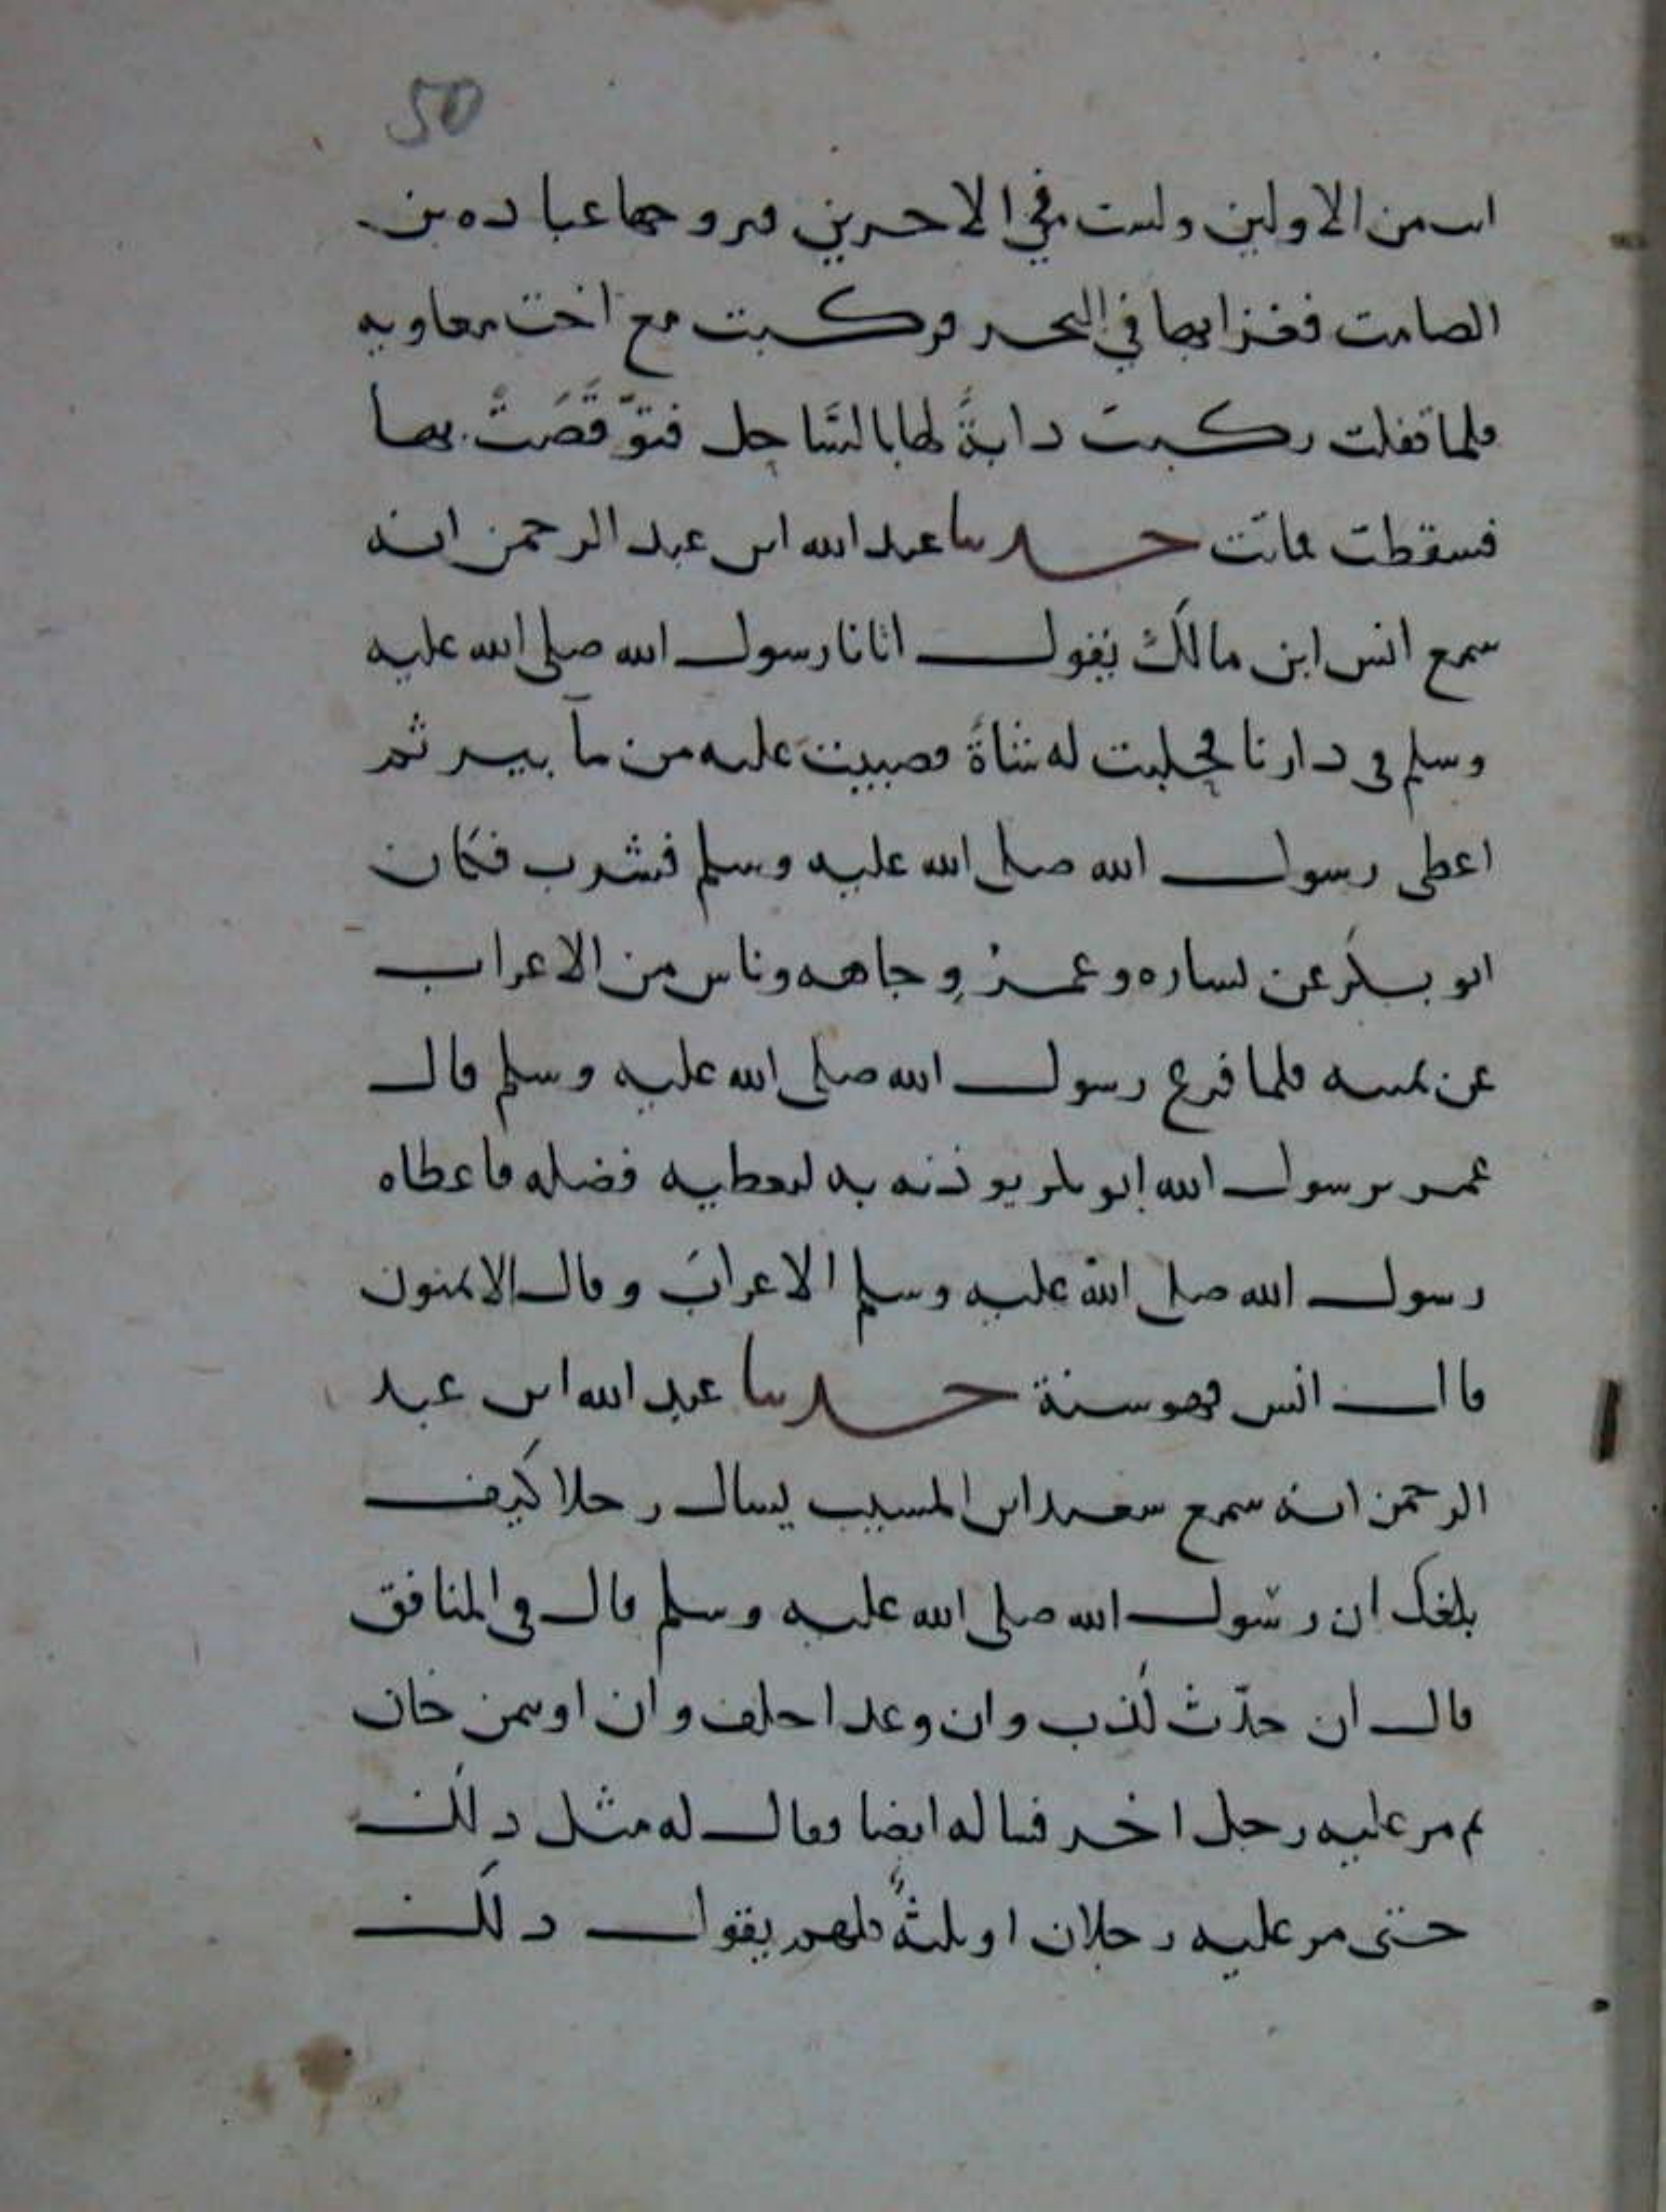 50
انت من الاولين ولست في الاخرين فتزوجها عباده بن
الصامت فغزا بها في البحر فركبت مع اخت معاويه
فلما قفلت ركبت دابةً لها بالسَّاحل فتوَّقَّصَتْ بها
فسقطت فماتت حدثنا عبد الله ابن عبد الرحمن انه
سمع انس ابن مالك يقول اتانا رسول الله صلى الله عليه
وسلم في دارنا فحلبت له شاةً فصببت عليه من مآ بير ثم
اعطى رسول الله صلى الله عليه وسلم فشرب فكان
ابو بكر عن يساره وعمرُ وِجاهه وناس من الاعراب
عن يمينه فلما فرغ رسول الله صلى الله عليه وسلم قال
عمر يرسول الله ابو بكر يوذنه به ليعطيه فضله فاعطاه
رسول الله صلى الله عليه وسلم الاعرابَ وقال الايمنون
قال انس فهو سنة حدثنا عبد الله ابن عبد
الرحمن انه سمع سعيد ابن المسيب يسال رجلا كيف
بلغك ان رسول الله صلى الله عليه وسلم قال في المنافق
قال ان حدّث كذب وان وعد اخلف وان اوتمن خان
ثم مر عليه رجل اخر فساله ايضا فقال له مثل ذلك
حتى مر عليه رجلان او ثلثةٌ كلهم يقول ذلك